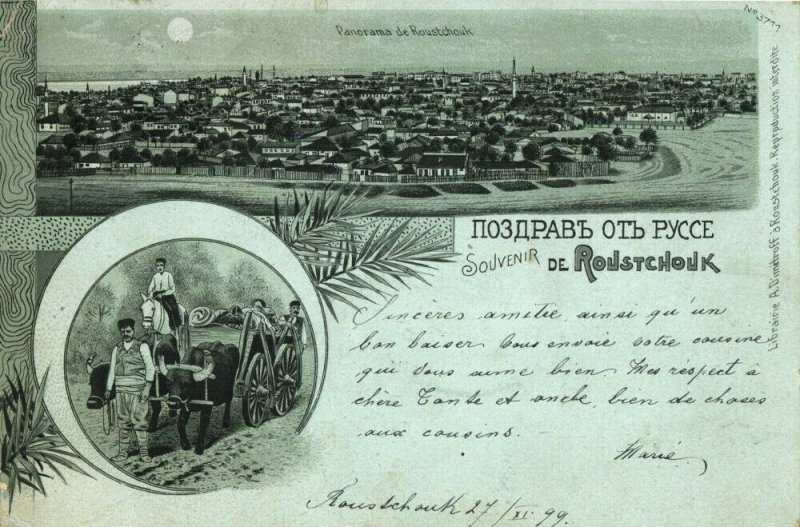 Nº 3711
Panorama de Roustchouk
ПОЗДРАВЪ ОТЪ РУССЕ
SOUVENIR DE ROUSTCHOUK
Sincères amitie ainsi qu'un
bon baiser Vous envoie votre cousine
qui vous aime bien. Mes réspect à
chère Tante et oncle, bien de choses
aux cousins.
Marie
Roustchouk 27/XI 99.
Librairie A. Dimitroff à Roustchouk. Reproduction interdite